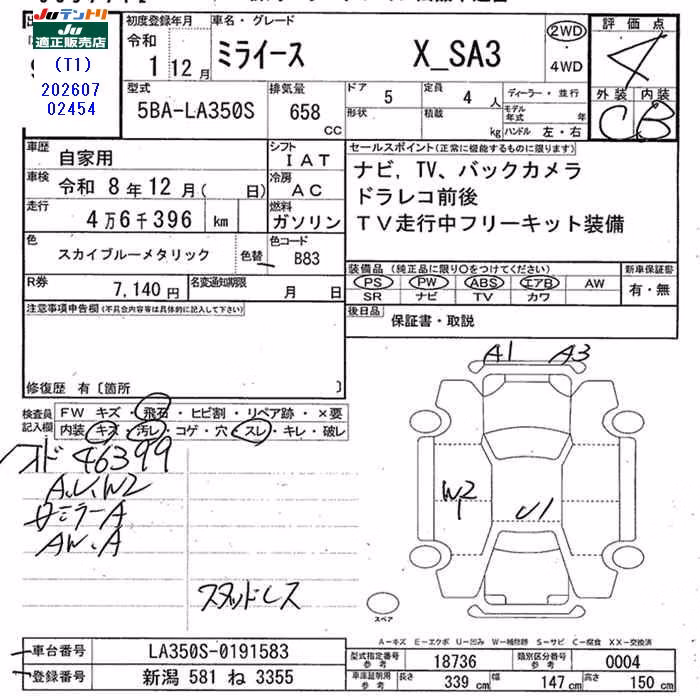 Juテントリ
Ju適正販売店
(T1)
202607
02454
初度登録年月
令和
1 12月
車名・グレード
ミライース X_SA3
2WD
・
4WD
評価点
4
外装 内装
C B
型式
5BA-LA350S
排気量
658
CC
ドア 5
定員 4 人
形状
積載 kg
ディーラー・並行
モデル年式 年
ハンドル 左・右
車歴
自家用
シフト
IAT
車検
令和 8年 12月( 日)
冷房
AC
走行
4万6千396 km
燃料
ガソリン
色
スカイブルーメタリック
色替
色コード
B83
R券
7,140円
名変通知期限
月 日
セールスポイント(正常に機能するものに限ります)
ナビ, TV、バックカメラ
ドラレコ前後
TV走行中フリーキット装備
装備品(純正品に限り○をつけてください)
PS PW ABS エアB AW
SR ナビ TV カワ
新車保証書
有・無
後日品
保証書・取説
注意事項申告欄(不具合内容等は具体的に記入して下さい)
修復歴 有〔箇所 〕
検査員
記入欄
FW キズ・飛石・ヒビ割・リペア跡・×要
内装 キズ・汚レ・コゲ・穴・スレ・キレ・破レ
メオド 46399
A,U,W2
ミラーA
AW、A
スタッドレス
A1 A3
W2
U1
スペア
A－キズ E－エクボ U－凹み W－補修跡 S－サビ C－腐食 XX－交換済
車台番号
LA350S-0191583
登録番号
新潟 581 ね 3355
型式指定番号
参考
18736
類別区分番号
参考
0004
車庫証明用
参考
長さ 339 cm
幅 147 cm
高さ 150 cm